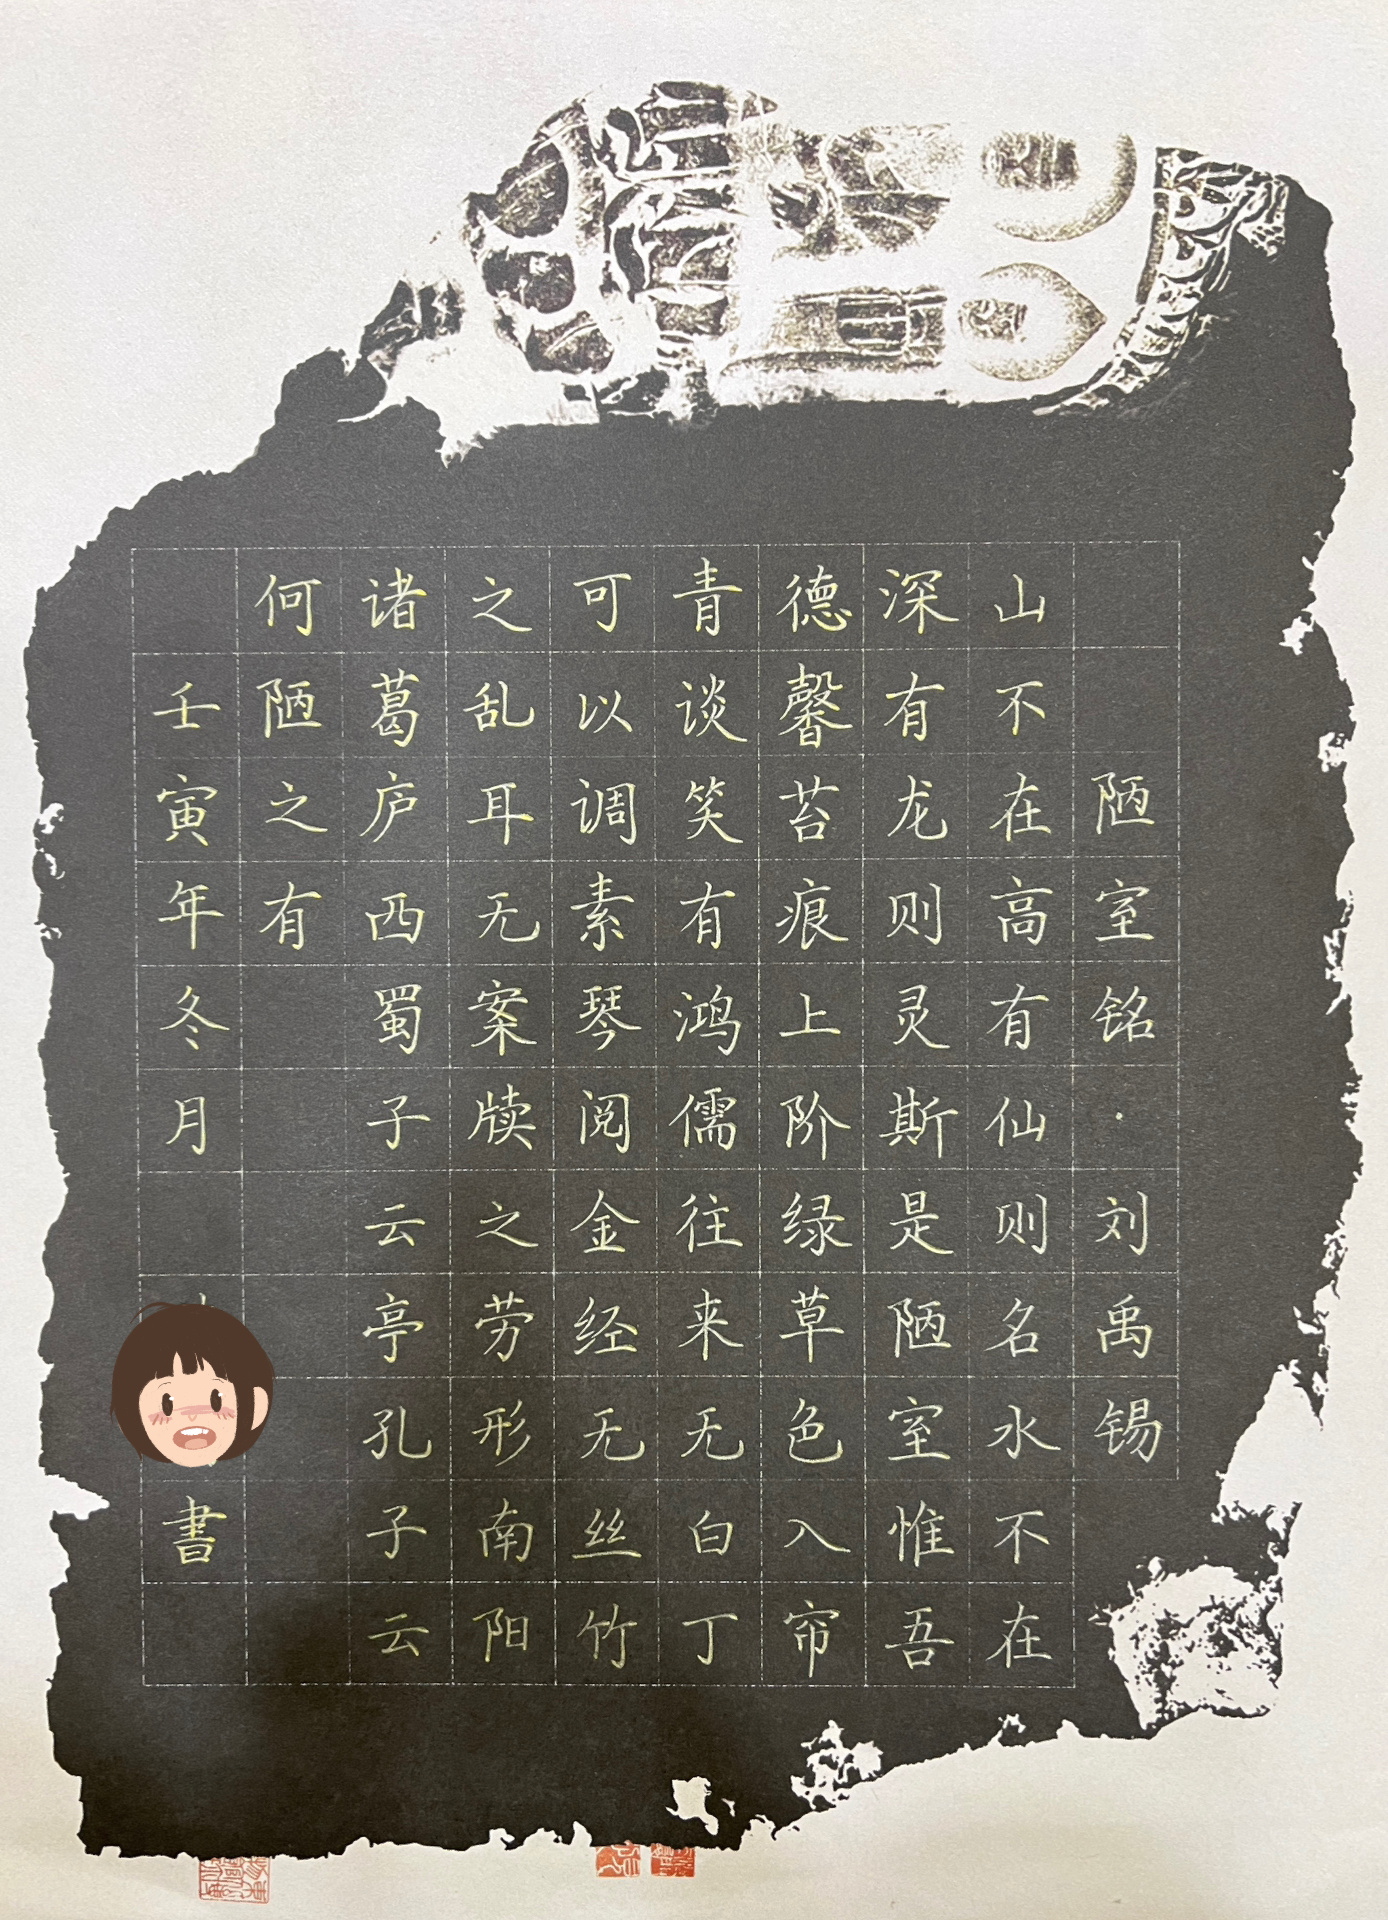 陋室铭·刘禹锡
山不在高有仙则名水不在
深有龙则灵斯是陋室惟吾
德馨苔痕上阶绿草色入帘
青谈笑有鸿儒往来无白丁
可以调素琴阅金经无丝竹
之乱耳无案牍之劳形南阳
诸葛庐西蜀子云亭孔子云
何陋之有
壬寅年冬月
書